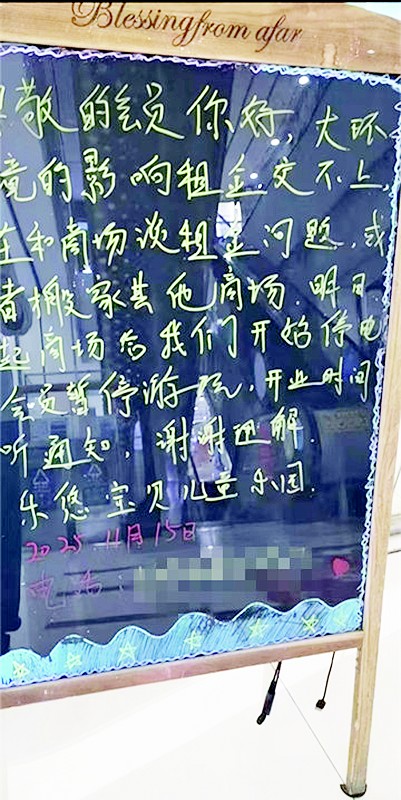 Blessingfrom afar
敬的会员你好,大环
境的影响租金交不上,
在和商场谈租金问题,或
者搬家其他商场.明日
起商场给我们开始停电
会员暂停游玩,开业时间
听通知,谢谢理解.
乐悠宝贝儿童乐园.
2025.11月15日
电话: